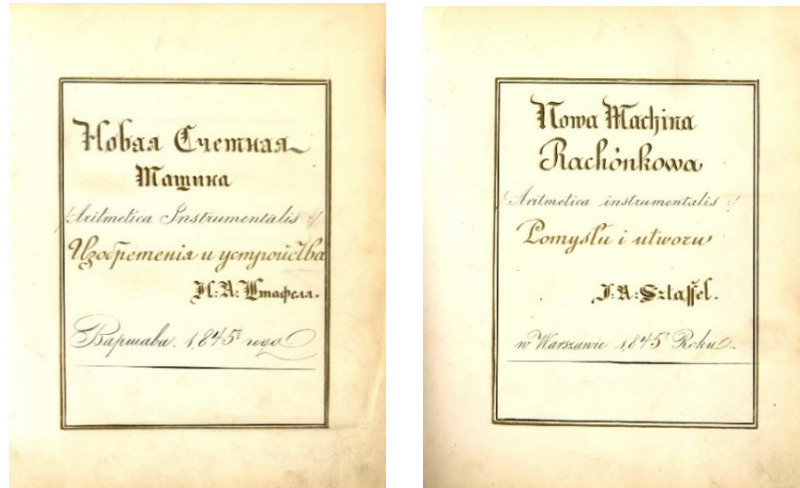 Новая Счетная
Машина
/: Aritmetica Instrumentalis :/
Изобретенія и устройства
И: А: Штафель.
Варшава. 1845г. года
Nowa Machina
Rachónkowa
/: Aritmetica instrumentalis :/
Pomysłu i utworu
J: A: Sztaffel.
w Warszawie 1845 Roku